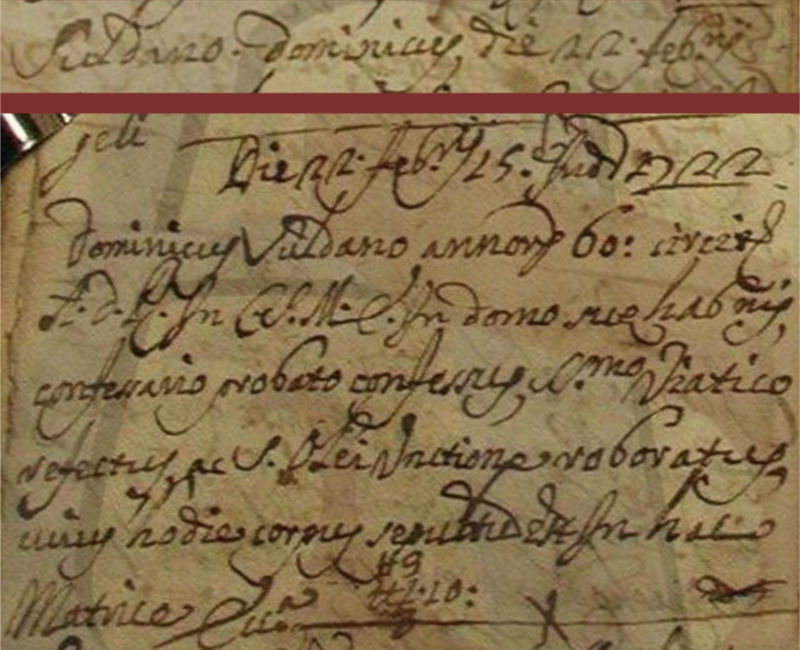 Vuldano. dominicus, die 22. feb.rij
geli
Die 22. feb.rij 15. Ind. 1722
Dominicus Vuldano annor. 60: circiter
A. D. R. In C. S. M. E. In domo sue hab.nis,
confessario probato confessus, S.mo Viatico
refectus, ac S. Olei Unctione roboratus
cuius hodie corpus sepultum est In hac
Matrice Ecc.a